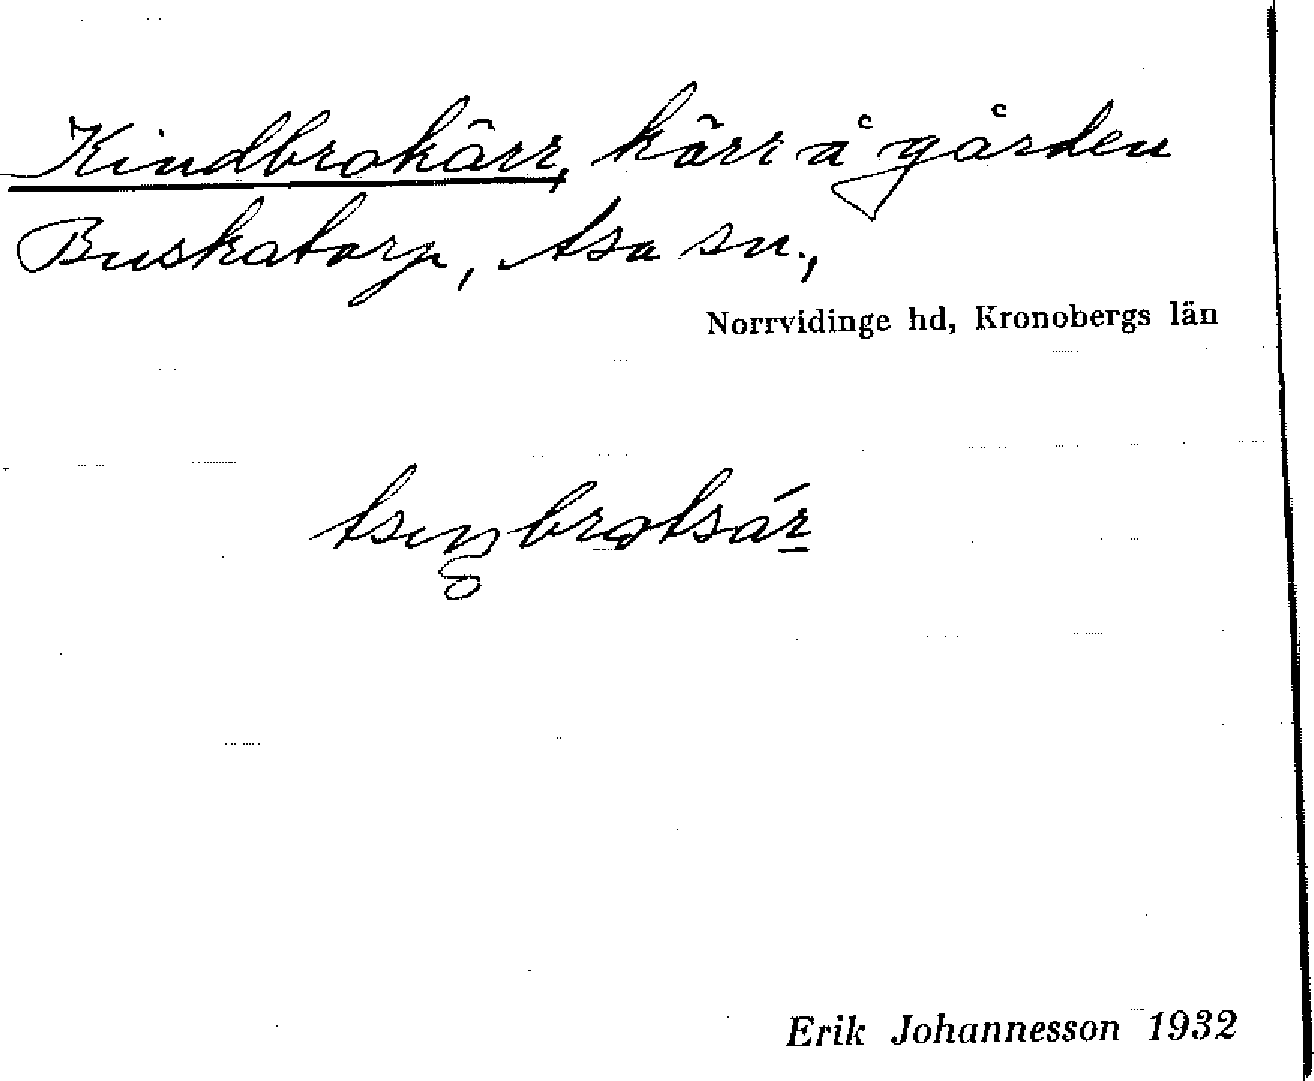 Kindbrokärr, kärr å gården
Buskatorp, Asa sn.,
Norrvidinge hd, Kronobergs län
Erik Johannesson 1932